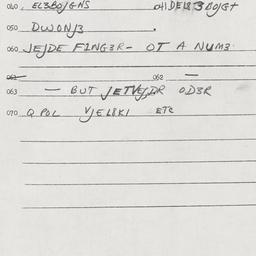 040, EL3BOJGNS 041 DEL83 BOJGT
050 DWONJ3 .
060 JEJDE F1NG3R- OT A NUM3
062 062 —
063 — BUT JETVEJDR OD3R
070 Q POL VJEL8KI ETC